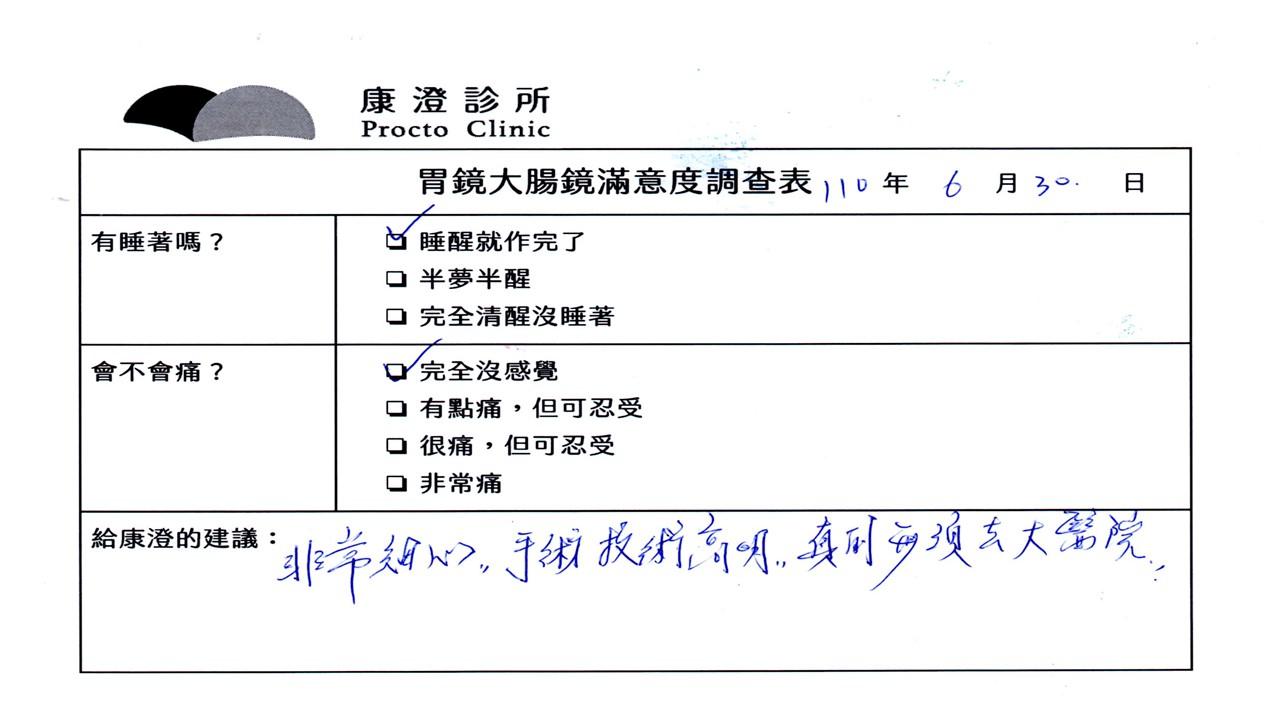 康澄診所
Procto Clinic
胃鏡大腸鏡滿意度調查表 110 年 6 月 30. 日
有睡著嗎？
睡醒就作完了
半夢半醒
完全清醒沒睡著
會不會痛？
完全沒感覺
有點痛，但可忍受
很痛，但可忍受
非常痛
給康澄的建議：非常細心,, 手術技術高明,, 真的 須去大醫院